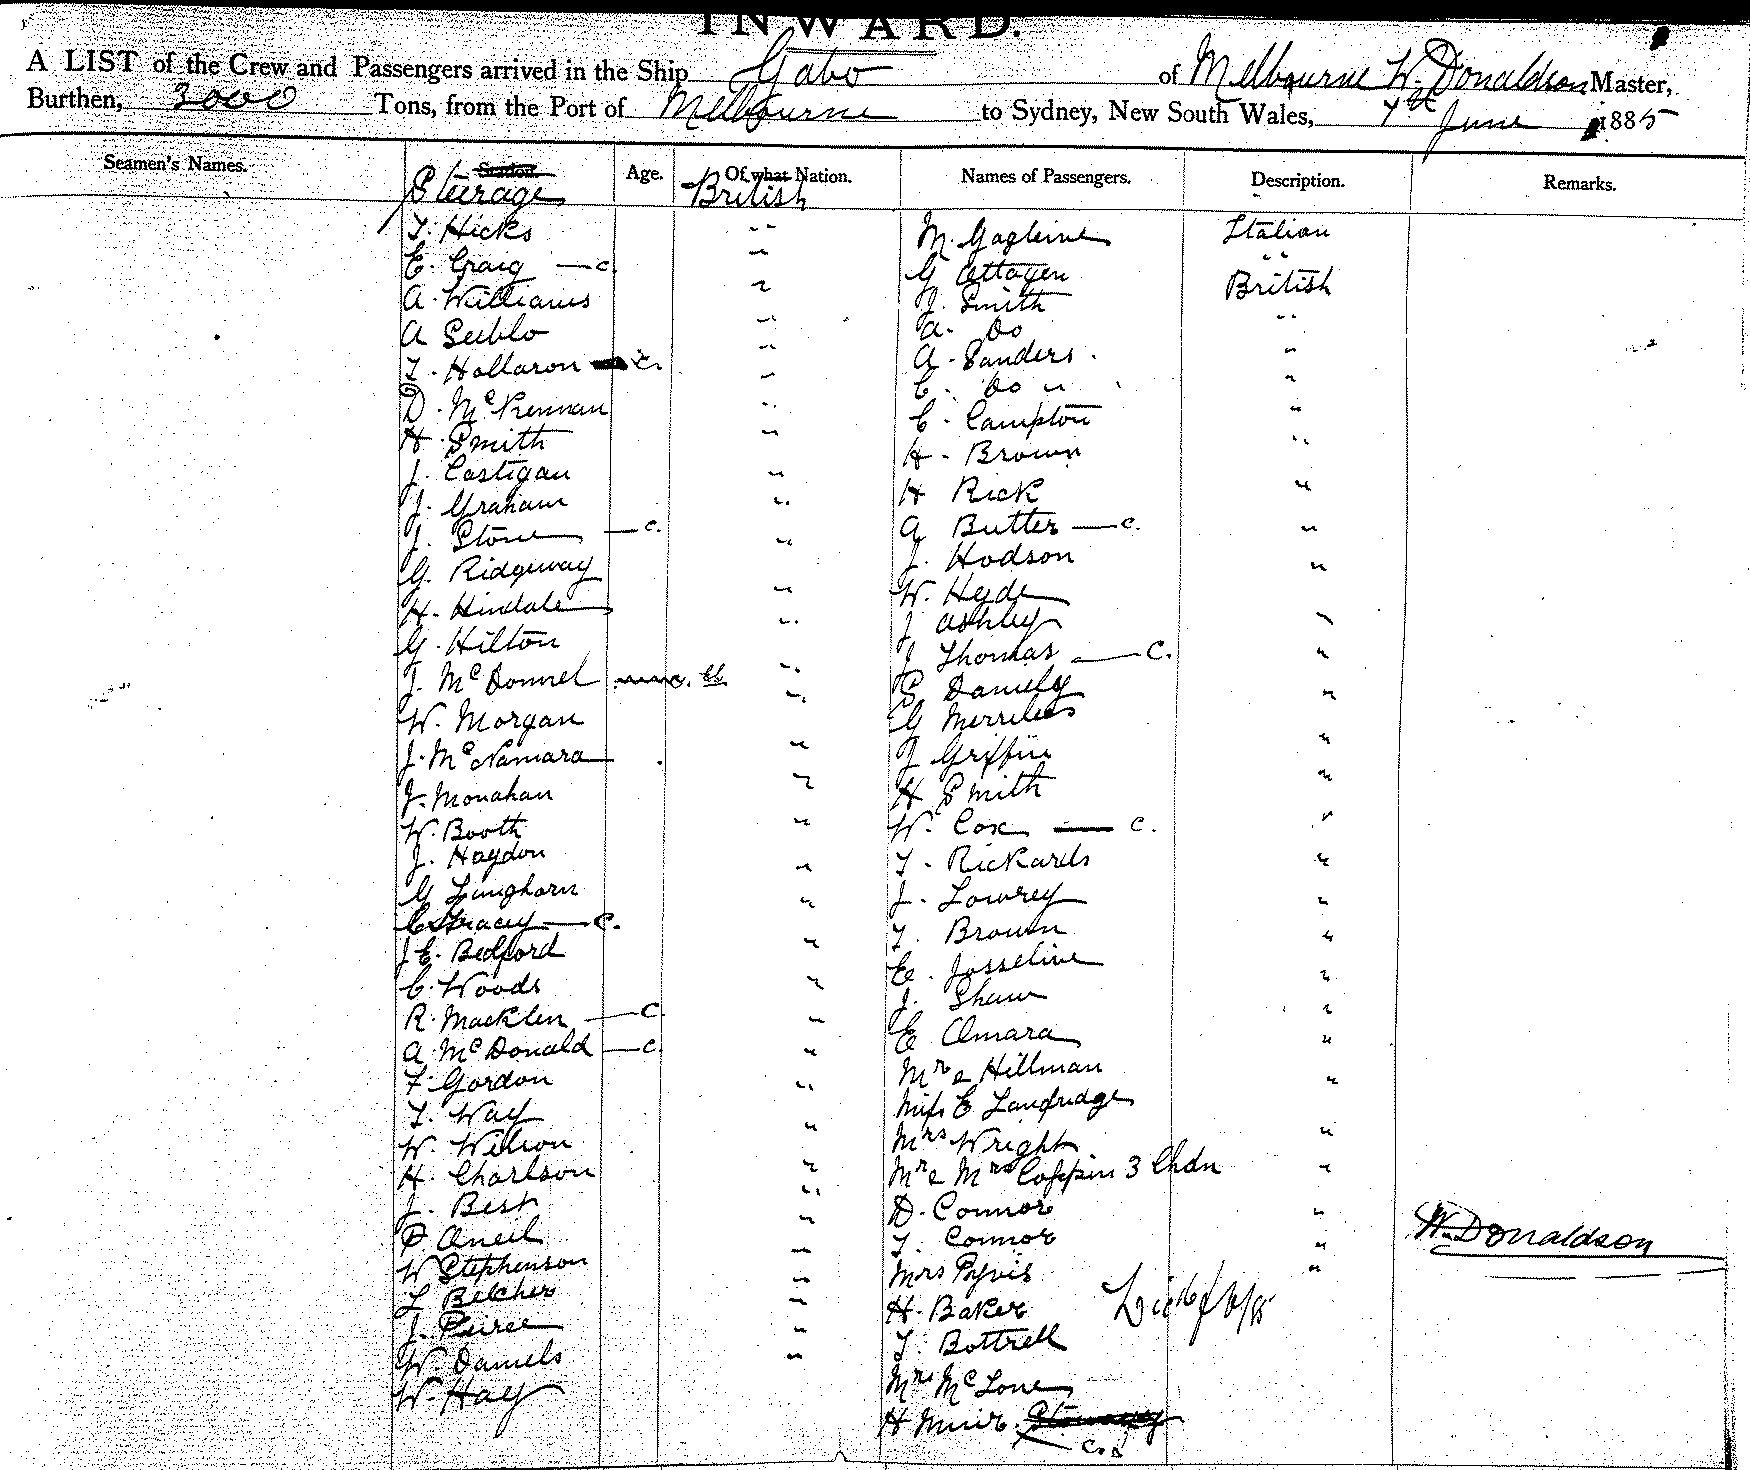 INWARD.
A LIST of the Crew and Passengers arrived in the Ship Gabo of Melbourne W. Donaldson Master,
Burthen, 3000 Tons, from the Port of Melbourne to Sydney, New South Wales, 4th June 1885
Seamen's Names. Station. Age. Of what Nation. Names of Passengers. Description. Remarks.
Steerage British
T. Hicks " M. Italian
E. Craig — c. " G "
A. Williams " J. Smith British
A " A. Do "
T. Hollaron — c. " A. Sanders "
D. McKennan " C. Do "
H. Smith " C. Campton "
J. Costigan " H. Brown "
J. Graham " H Rick "
J. Stone — c. " A Butter — c. "
G. Ridgeway " J. Hodson "
H. Hindale " W. Hyde
G. Hilton " J Ashley "
J. McDonnel " J Thomas — C. "
W. Morgan " Daniels "
J. McNamara " G Merrilees "
J. Monahan " J Griffin "
W. Booth " H Smith "
J. Haydon " W. Cox — c. "
G Langhorn " T. Rickards "
C Stracey — C. " J. Lowrey "
J E. Bedford " T. Brown "
C. Woods " E. Josseline "
R. Macklen — C " J. Shaw "
A. McDonald — c. " E Omara "
F. Gordon " Mr Hillman "
T. Way " Miss E Landridge "
W. Wilson " Mrs Wright "
H. Charlson " Mr & Mrs Coppin 3 Chdn "
J. Best " D. Connor "
P Oneil " T. Connor "
W Stephenson " Mrs "
L Belcher " H. Baker
J. " T. Bottrell
W. Daniels " Mrs McLone
W. Hay H Muir
W. Donaldson